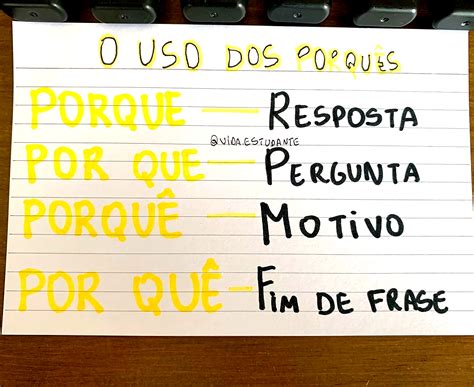 O USO DOS PORQUÊS
PORQUE — RESPOSTA
@VIDA.ESTUDANTE
POR QUE — PERGUNTA
PORQUÊ — MOTIVO
POR QUÊ — FIM DE FRASE